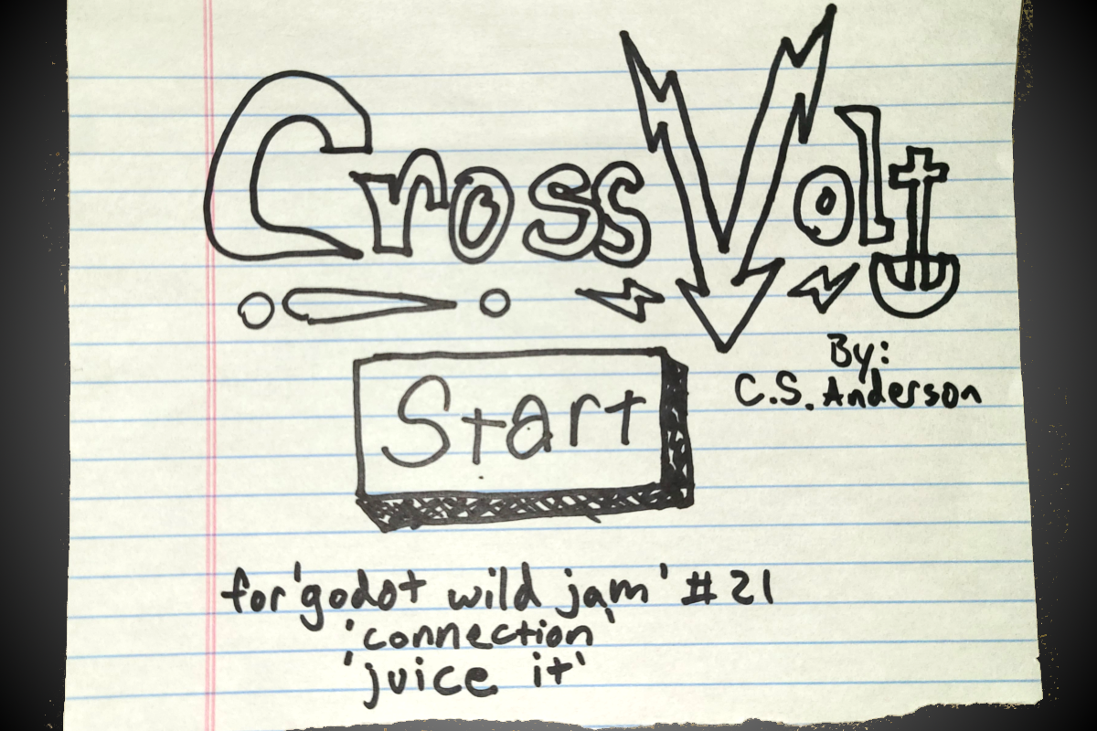 Cross Volt
By:
C.S. Anderson
Start
for 'godot wild jam' #21
'connection'
'juice it'